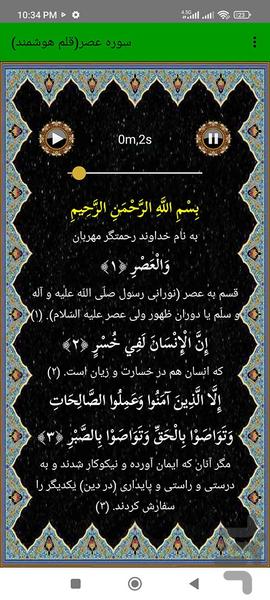 10:34 PM
4.5G
123
سوره عصر(قلم هوشمند)
0m,2s
بِسْمِ اللَّهِ الرَّحْمَنِ الرَّحِيمِ
به نام خداوند رحمتگر مهربان
وَالْعَصْرِ ﴿۱﴾
قسم به عصر (نورانی رسول صلّی اللّه علیه و آله
و سلّم یا دوران ظهور ولی عصر علیه السّلام). (۱)
إِنَّ الْإِنْسَانَ لَفِي خُسْرٍ ﴿۲﴾
که انسان هم در خسارت و زیان است. (۲)
إِلَّا الَّذِينَ آمَنُوا وَعَمِلُوا الصَّالِحَاتِ
وَتَوَاصَوْا بِالْحَقِّ وَتَوَاصَوْا بِالصَّبْرِ ﴿۳﴾
مگر آنان که ایمان آورده و نیکوکار شدند و به
درستی و راستی و پایداری (در دین) یکدیگر را
سفارش کردند. (۳)